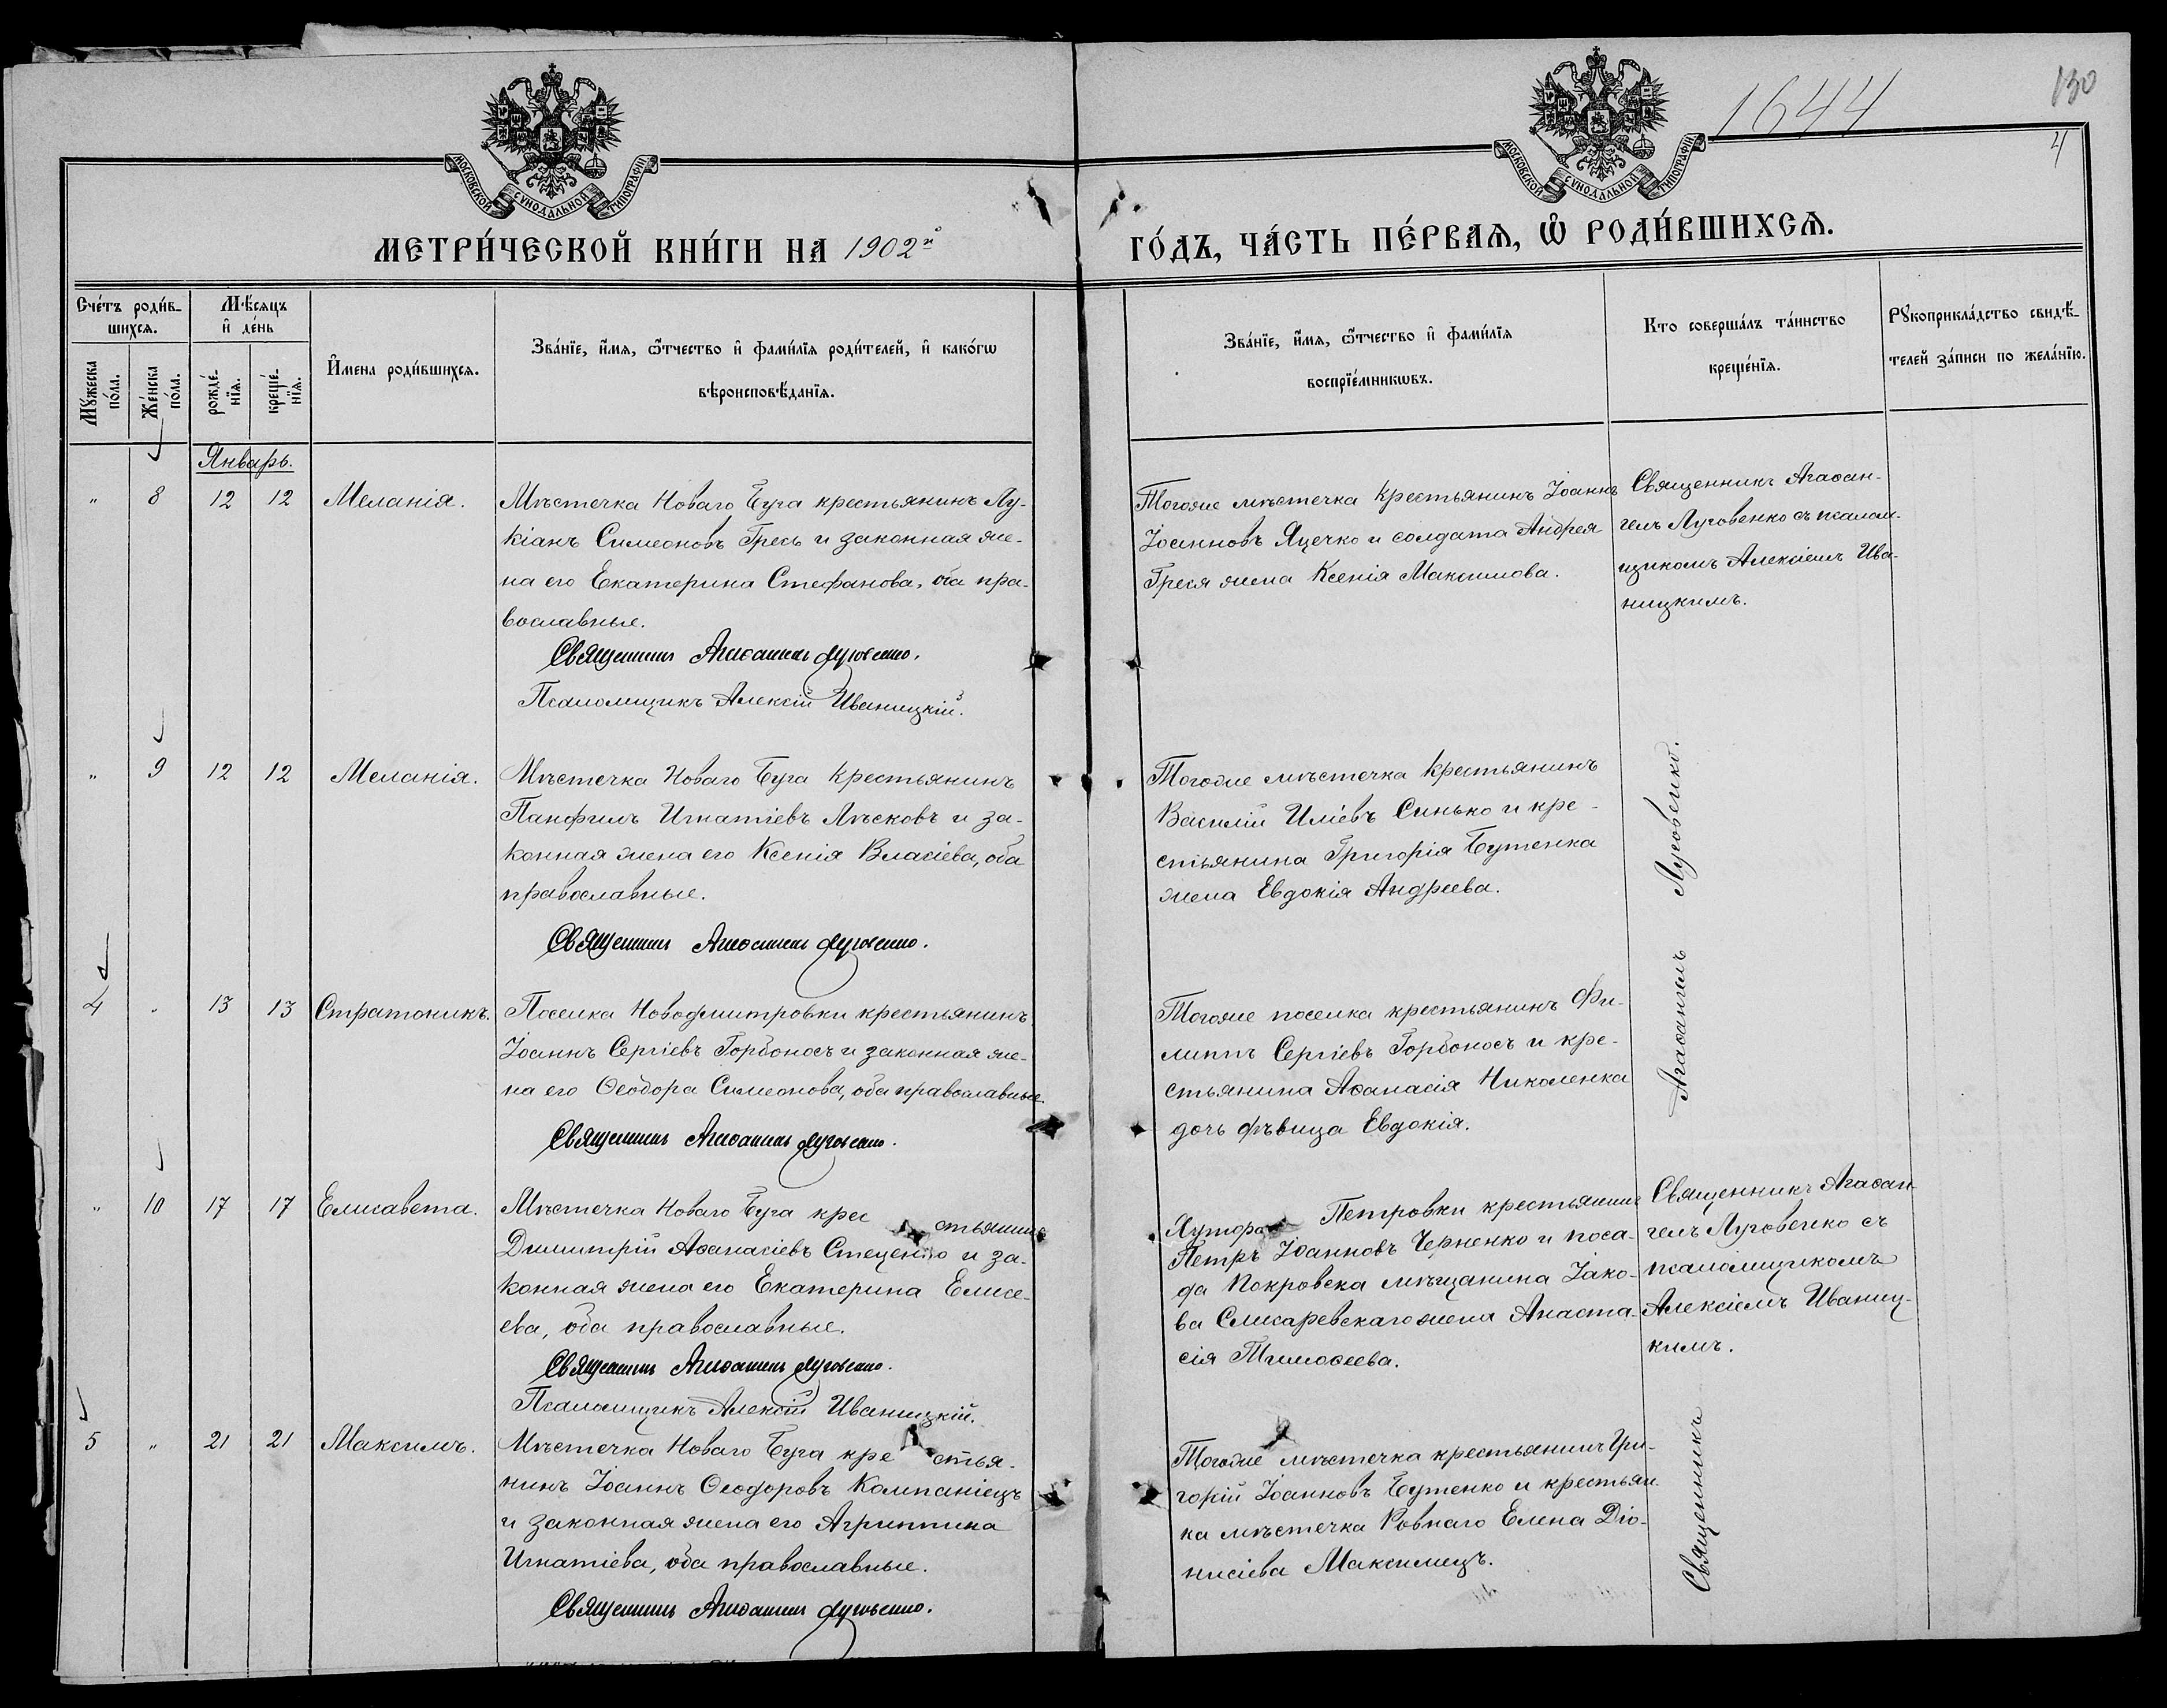 1644
130
4
МОСКОВСКОЙ СѴНОДАЛЬНОЙ ТИПОГРАФІИ
МОСКОВСКОЙ СѴНОДАЛЬНОЙ ТИПОГРАФІИ
МЕТРИ́ЧЕСКОЙ КНИ́ГИ НА 1902й
ГО́ДЪ, ЧА́СТЬ ПЕ́РВАѦ, Ѡ҆ РОДИ́ВШИХСѦ.
Сче́тъ роди́в-
шихсѧ.
Мѣ́сяцъ
и҆ де́нь
Мꙋ́жеска
по́ла.
Же́нска
по́ла.
рожде́-
нїѧ.
креще́-
нїѧ.
И҆мена роди́вшихсѧ.
Зва́нїе, и҆́мѧ, ѻ҆́тчество и҆ фами́лїѧ роди́телей, и҆ како́гѡ
вѣроисповѣ́данїѧ.
Зва́нїе, и҆́мѧ, ѻ҆́тчество и҆ фами́лїѧ
воспрїе́мникѡвъ.
Кто соверша́лъ та́инство
креще́нїѧ.
Рꙋкоприкла́дство свидѣ́-
телей за́писи по жела́нїю.
Январь.
" 8 12 12 Меланія.
Мѣстечка Новаго Буга крестьянинъ Лу-
кіанъ Симеоновъ Гресь и законная же-
на его Екатерина Стефанова, оба пра-
вославные.
Священникъ Агаѳангелъ Луговенко.
Псаломщикъ Алексій Иваницкій.
Тогоже мѣстечка крестьянинъ Іоаннъ
Іоанновъ Яцечко и солдата Андрея
Греся жена Ксенія Максимова.
Священникъ Агаѳан-
гелъ Луговенко съ псалом-
щикомъ Алексіемъ Ива-
ницкимъ.
" 9 12 12 Меланія.
Мѣстечка Новаго Буга крестьянинъ
Панфилъ Игнатіевъ Лѣсковъ и за-
конная жена его Ксенія Власіева, оба
православные.
Священникъ Агаѳангелъ Луговенко.
Тогоже мѣстечка крестьянинъ
Василій Иліевъ Синько и кре-
стьянина Григорія Бутенка
жена Евдокія Андреева.
4 " 13 13 Стратоникъ.
Поселка Новодмитровки крестьянинъ
Іоаннъ Сергіевъ Горбоносъ и законная же-
на его Ѳеодора Симеонова, оба православные.
Священникъ Агаѳангелъ Луговенко.
Тогоже поселка крестьянинъ Фи-
липпъ Сергіевъ Горбоносъ и кре-
стьянина Аѳанасія Николенка
дочь дѣвица Евдокія.
" 10 17 17 Елисавета.
Мѣстечка Новаго Буга крестьянинъ
Димитрій Аѳанасіевъ Стеценко и за-
конная жена его Екатерина Елисе-
ева, оба православные.
Священникъ Агаѳангелъ Луговенко.
Псаломщикъ Алексій Иваницкій.
Хутора Петровки крестьянинъ
Петръ Іоанновъ Черненко и поса-
да Покровска мѣщанина Іако-
ва Слисаревскаго жена Анаста-
сія Тимоѳеева.
Священникъ Агаѳан-
гелъ Луговенко съ
псаломщикомъ
Алексіемъ Иваниц-
кимъ.
5 " 21 21 Максимъ.
Мѣстечка Новаго Буга крестья-
нинъ Іоаннъ Ѳеодоровъ Компаніецъ
и законная жена его Агриппина
Игнатіева, оба православные.
Священникъ Агаѳангелъ Луговенко.
Тогоже мѣстечка крестьянинъ Гри-
горій Іоанновъ Бутенко и крестьян-
ка мѣстечка Ровнаго Елена Діо-
нисіева Максимецъ.
Священникъ Агаѳангелъ Луговенко.